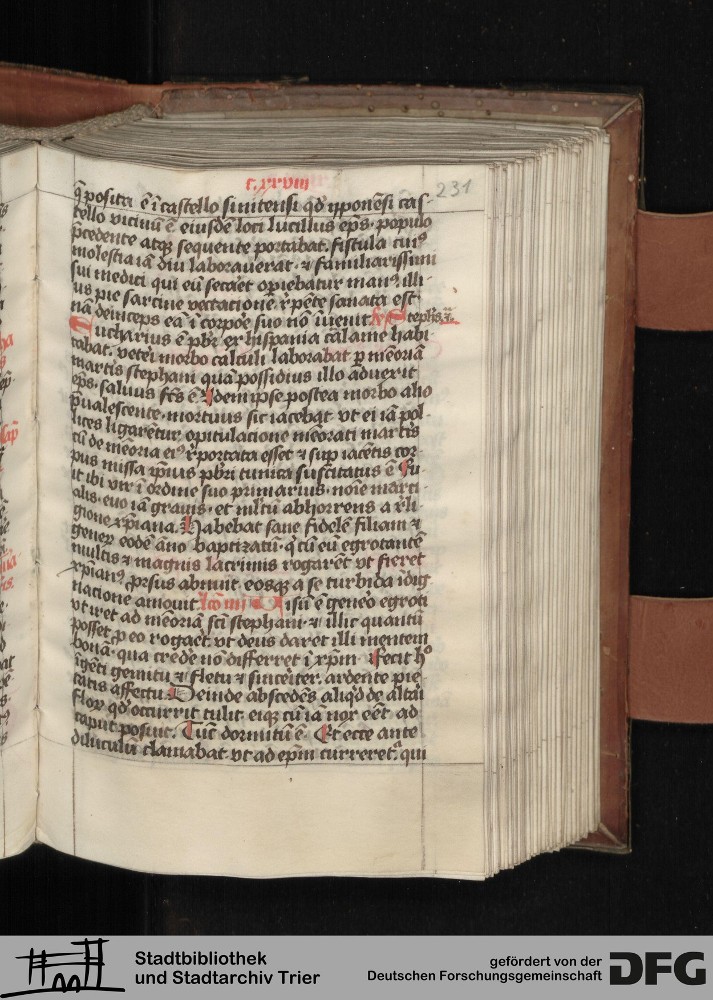 c. xxviii
231
q̄ posita ē ī castello sinitensi qd' yponēsi cas-
tello vicinū ē eiusdē loci lucillus ep̄s. populo
p̄cedente atq; sequente portabat. fistula cui⁹
molestia iā diu laborauerat. ⁊ familiarissimi
sui medici qui eū secaēt opiebatur man⁹ illi-
us pie sarcine vectatione. r̄pēte sanata est
nā deinceps eā ī corpoē suo nō īuenit
Eucharius ē pb̄r ex hispania calame habi-
tabat. veteī morbo calculi laborabat p memoīā
martis stephani quā possidius illo aduexit
ep̄s. saluus fc̄s ē Idem ipse postea morbo alio
p̄ualescente. mortuus sic iacebat. vt ei iā pol-
lices ligarētur opitulacione mēorati martis
cū de mēoria ei⁹ r̄portata esset ⁊ sup iacētis cor-
pus missa ip̄ius pb̄ri tunica suscitatus ē Fu-
it ibi vir ī ordine suo primarius. noīe marci-
alis. euo iā grauis. et ml̄tū abhorrens a r̄li-
gione xp̄iana. Habebat sane fidelē filiam ⁊
generꝝ eodē āno baptizatū. q̄ cū eū egrotantē
multis ⁊ magnis lacrimis rogarēt vt fieret
xp̄ian⁹. p̄rsus abnuit. eosq; a se turbida īdig-
nacione amouit. lc̄o iiij Uisū ē geneō egroti
vt iret ad mēoriā sc̄i stephani. ⁊ illic quantū
posset p eo rogaēt. vt deus daret illi mentem
bonā. qua cređe nō differret ī xp̄m. Fecit h⁰
īgēti gemitu ⁊ fletu ⁊ sincēiter. ardente pie-
tatis affectu. Deinde abscedēs aliq̄d de altaī
floꝝ qd' occurrit tulit. eiq; cū iā nox eēt ad
caput posuit. Tūc dormitū ē Et ecce ante
diluculū clamabat. vt ad ep̄m curreret. qui
Stadtbibliothek
und Stadtarchiv Trier
gefördert von der
Deutschen Forschungsgemeinschaft
DFG